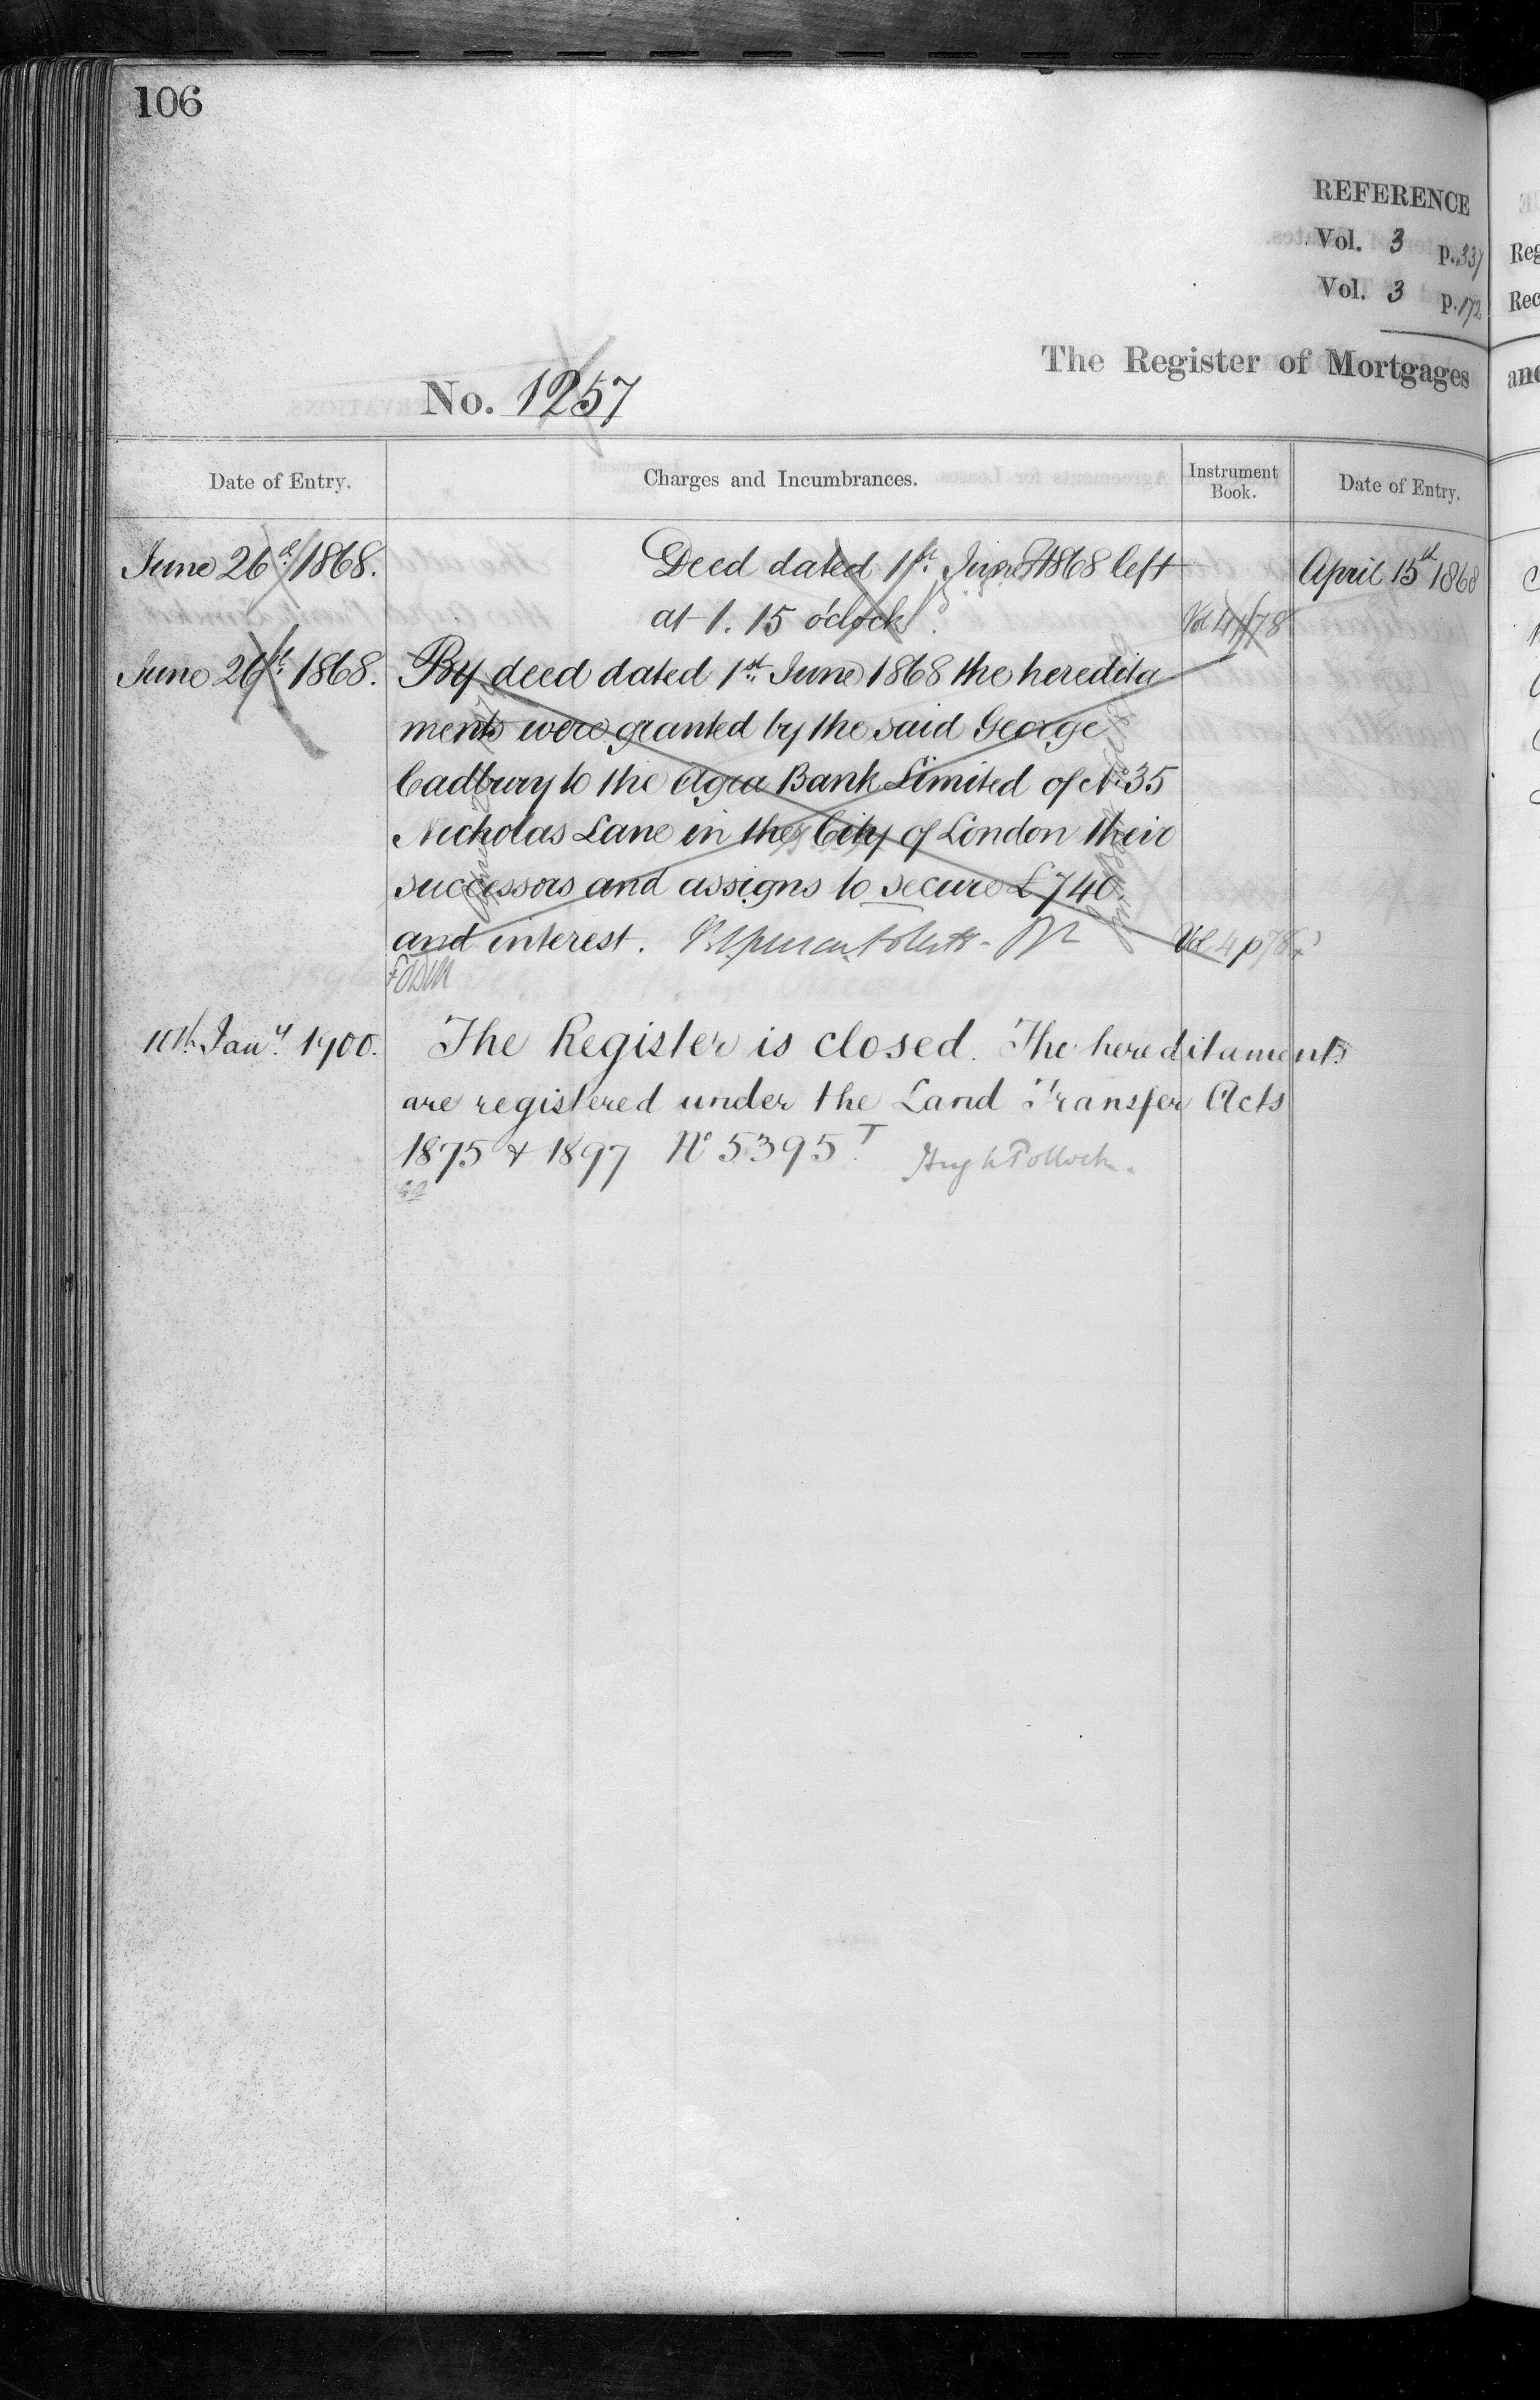 106
REFERENCE
Vol. 3 p. 337
Vol. 3 p. 172
The Register of Mortgages
No. 1257
Date of Entry. Charges and Incumbrances. Instrument Book. Date of Entry.
June 26th 1868. Deed dated 1st. June 1868 left April 15th 1868
at 1. 15 o'clock. Vol 4 p 78
June 26th 1868. By deed dated 1st June 1868 the heredita
ments were granted by the said George
Cadbury to the Agra Bank Limited of No. 35
Nicholas Lane in the City of London their
successors and assigns to secure £740
and interest. Vol 4 p 78
10th Jany. 1900. The Register is closed. The hereditaments
are registered under the Land Transfer Acts
1875 & 1897 No 5395 T. Hugh Pollock.